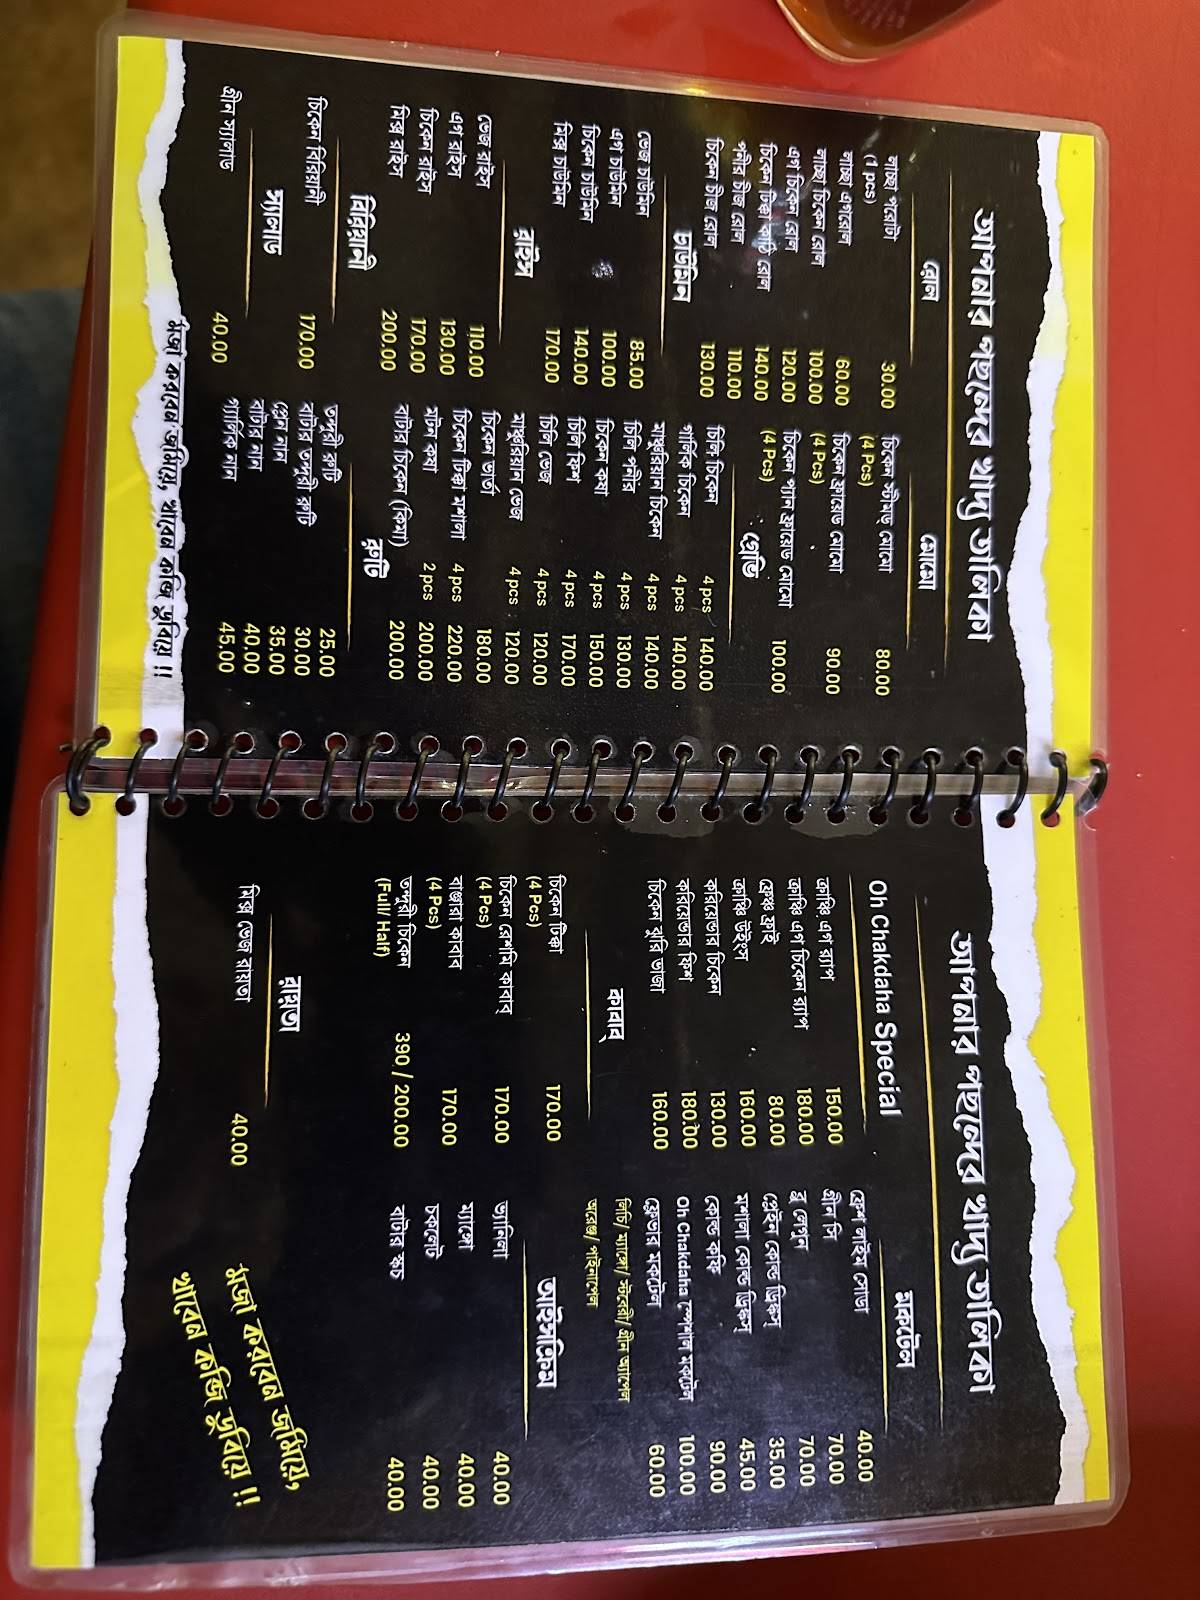 আপনার পছন্দের খাদ্য তালিকা
রোল
লাচ্ছা পরোটা 30.00
(1 pcs)
লাচ্ছা এগরোল 60.00
লাচ্ছা চিকেন রোল 100.00
এগ চিকেন রোল 120.00
চিকেন টিক্কা কাঠি রোল 140.00
পনীর চীজ রোল 110.00
চিকেন চীজ রোল 130.00
চাউমিন
ভেজ চাউমিন 85.00
এগ চাউমিন 100.00
চিকেন চাউমিন 140.00
মিক্স চাউমিন 170.00
রাইস
ভেজ রাইস 110.00
এগ রাইস 130.00
চিকেন রাইস 170.00
মিক্স রাইস 200.00
বিরিয়ানী
চিকেন বিরিয়ানী 170.00
স্যালাড
গ্রীন স্যালাড 40.00
মোমো
চিকেন স্টীমড্ মোমো 80.00
(4 Pcs)
চিকেন ফ্রায়েড মোমো 90.00
(4 Pcs)
চিকেন প্যান ফ্রায়েড মোমো 100.00
(4 Pcs)
গ্রেভি
চিলি চিকেন 4 pcs 140.00
গার্লিক চিকেন 4 pcs 140.00
মাঞ্চুরিয়ান চিকেন 4 pcs 140.00
চিলি পনীর 4 pcs 130.00
চিকেন কষা 4 pcs 150.00
চিলি ফিশ 4 pcs 170.00
চিলি ভেজ 4 pcs 120.00
মাঞ্চুরিয়ান ভেজ 4 pcs 120.00
চিকেন ভর্তা 180.00
চিকেন টিক্কা মশালা 4 pcs 220.00
মটন কষা 2 pcs 200.00
বাটার চিকেন (কিমা) 200.00
রুটি
তন্দুরী রুটি 25.00
বাটার তন্দুরী রুটি 30.00
প্লেন নান 35.00
বাটার নান 40.00
গার্লিক নান 45.00
মজা করবেন জমিয়ে, খাবেন কব্জি ডুবিয়ে !!
আপনার পছন্দের খাদ্য তালিকা
Oh Chakdaha Special
ক্রাঞ্চি এগ র‍্যাপ 150.00
ক্রাঞ্চি এগ চিকেন র‍্যাপ 180.00
ফ্রেঞ্চ ফ্রাই 80.00
ক্রাঞ্চি উইংস 160.00
করিয়েন্ডার চিকেন 130.00
করিয়েন্ডার ফিশ 180.00
চিকেন ঝুরি ভাজা 160.00
কাবাব্
চিকেন টিক্কা 170.00
(4 Pcs)
চিকেন রেশমি কাবাব্ 170.00
(4 Pcs)
বাঞ্জারা কাবাব 170.00
(4 Pcs)
তন্দুরী চিকেন 390 / 200.00
(Full/ Half)
রায়তা
মিক্স ভেজ রায়তা 40.00
মকটেল
ফ্রেশ লাইম সোডা 40.00
গ্রীন সি 70.00
ব্লু লেগুন 70.00
প্লেইন কোল্ড ড্রিঙ্কস্ 35.00
মশালা কোল্ড ড্রিঙ্কস্ 45.00
কোল্ড কফি 90.00
Oh Chakdaha স্পেশাল মকটেল 100.00
ফ্লেভার মকটেল 60.00
লিচি/ ম্যাঙ্গো/ স্টবেরী/ গ্রীন অ্যাপেল
অরেঞ্জ/ পাইনাপেল
আইসক্রিম
ভ্যানিলা 40.00
ম্যাঙ্গো 40.00
চকলেট 40.00
বাটার স্কচ 40.00
মজা করবেন জমিয়ে,
খাবেন কব্জি ডুবিয়ে !!